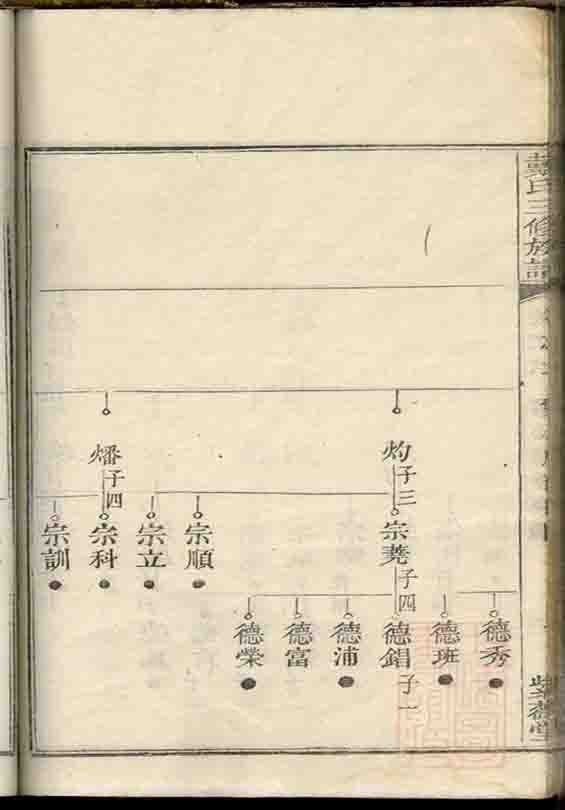 戴氏三修族譜
灼子三
燔子四
宗堯子四
宗順
宗立
宗科
宗訓
德秀
德班
德錩子一
德浦
德富
德榮